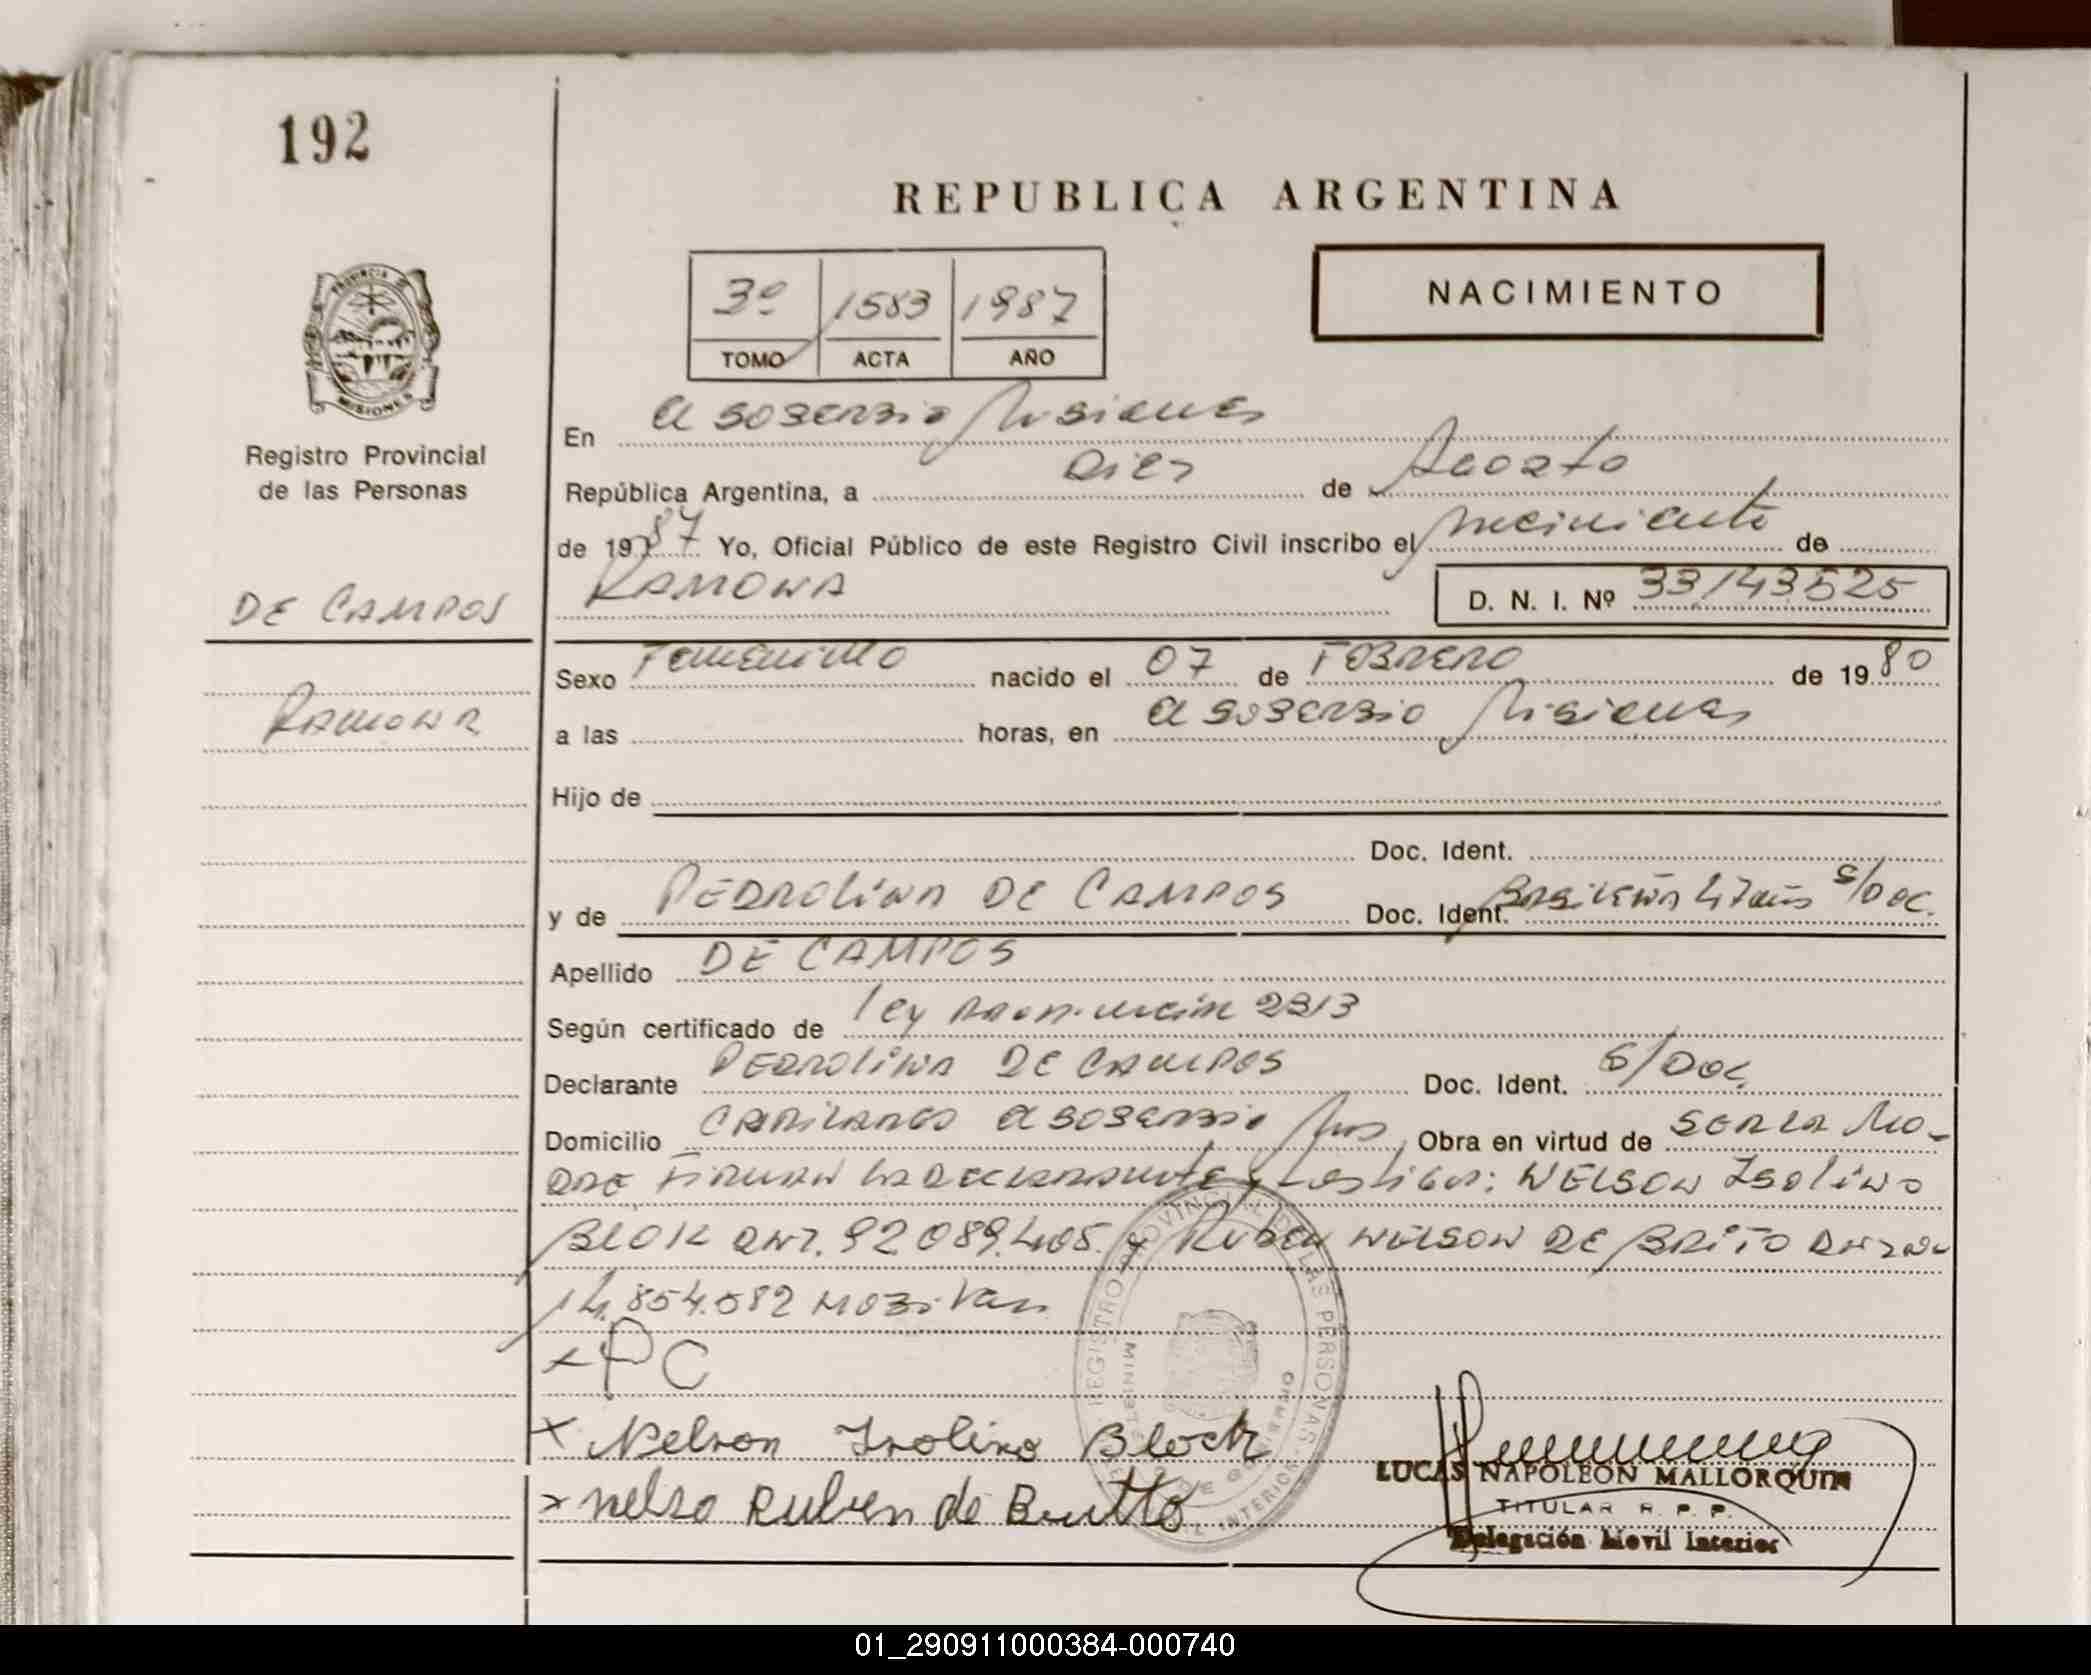 192
REPUBLICA ARGENTINA
3º 1583 1987
TOMO ACTA AÑO
NACIMIENTO
PROVINCIA DE
MISIONES
Registro Provincial
de las Personas
En Misiones
República Argentina, a Diez de Agosto
de 1987 Yo, Oficial Público de este Registro Civil inscribo el nacimiento de
RAMONA
D. N. I. Nº 33143525
DE CAMPOS
RAMONA
Sexo Femenino nacido el 07 de FEBRERO de 1980
a las horas, en Misiones
Hijo de
Doc. Ident.
y de PEDROLINA DE CAMPOS Doc. Ident. S/Doc.
Apellido DE CAMPOS
Según certificado de ley 2313
Declarante PEDROLINA DE CAMPOS Doc. Ident. S/Doc.
Domicilio Obra en virtud de
FIRMAN LA DECLARANTE y testigos: NELSON Isolino
BLOK DNI. 92.089.405. y Ruben NELSON DE BRITO
14.854.582
x PC
x Nelson Isolino Block
x nelso Ruben de Britto
REGISTRO PROVINCIAL DE LAS PERSONAS
MINISTERIO DE GOBIERNO
LUCAS NAPOLEON MALLORQUIN
TITULAR R. P. P.
Delegación Movil Interior
01_290911000384-000740